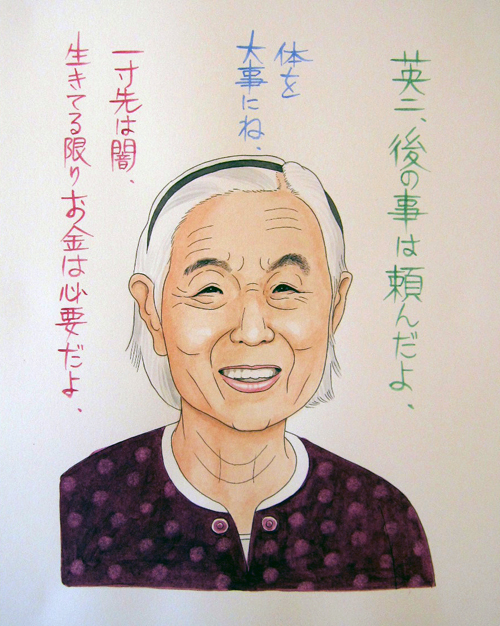 英二、後の事は頼んだよ、
体を
大事にね、
一寸先は闇、
生きてる限りお金は必要だよ、